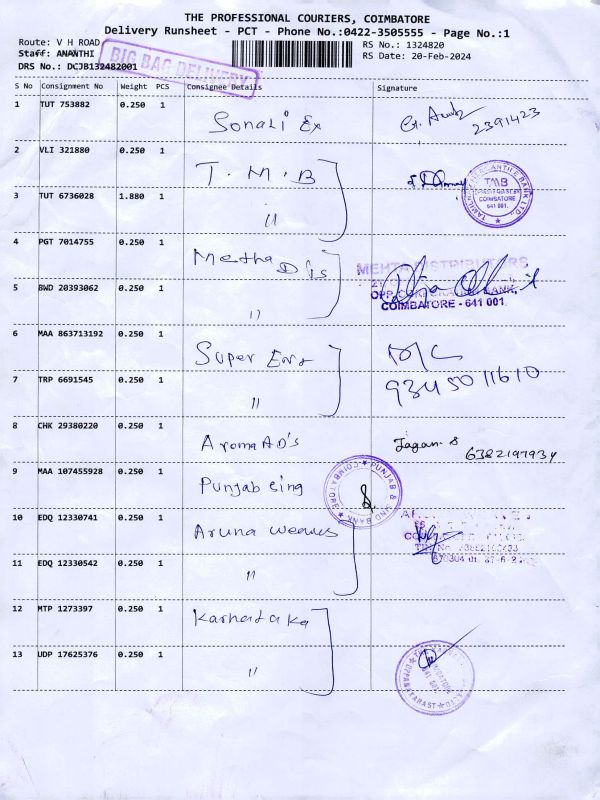 THE PROFESSIONAL COURIERS, COIMBATORE
Delivery Runsheet - PCT - Phone No.:0422-3505555 - Page No.:1
Route: V H ROAD
Staff: ANANTHI
DRS No.: DCJB132482001
BIG BAG DELIVERY
RS No.: 1324820
RS Date: 20-Feb-2024
S No Consignment No Weight PCS Consignee Details Signature
1 TUT 753882 0.250 1 Sonali Ex
2391423
2 VLI 321880 0.250 1 T.M.B
TMB
COIMBATORE
641 001.
3 TUT 6736028 1.880 1 "
4 PGT 7014755 0.250 1 Meetha Dis
MEHTA DISTRIBUTORS
5 BWD 20393062 0.250 1 "
COIMBATORE - 641 001
6 MAA 863713192 0.250 1 Super Enr
7 TRP 6691545 0.250 1 "
9345011610
8 CHK 29380220 0.250 1 Aroma AD's Jagan S
6382197934
9 MAA 107455928 0.250 1 Punjab sing
PUNJAB & SIND BANK ★ COIMBATORE ★
10 EDQ 12330741 0.250 1 Aruna weaves
11 EDQ 12330542 0.250 1 "
12 MTP 1273397 0.250 1 Karnataka
13 UDP 17625376 0.250 1 "